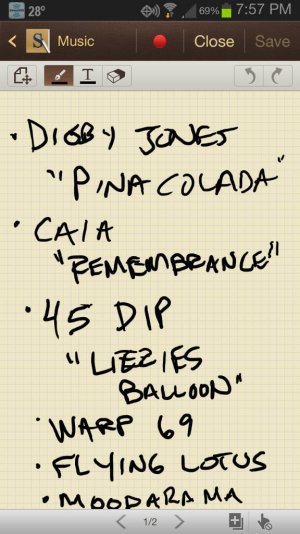 28°
69% 7:57 PM
Music Close Save
T
• DIGBY JONES
"PINA COLADA"
• CAIA
"REMEMBRANCE"
• 45 DIP
"LIEZIES
BALLOON"
• WARP 69
• FLYING LOTUS
• MOODARAMA
1/2